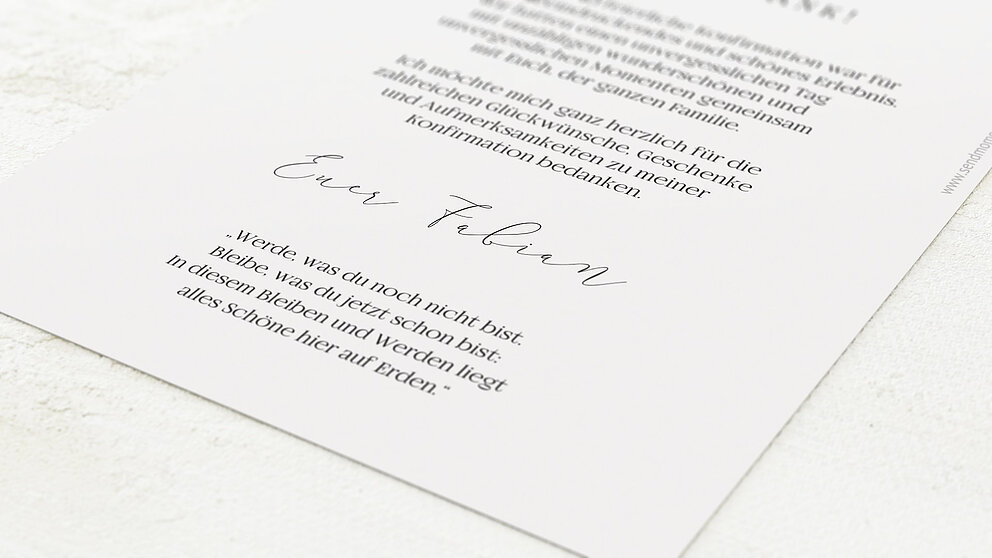 Konfirmation war für
und schönes Erlebnis.
einen unvergesslichen Tag
mit unzähligen wunderschönen und
unvergesslichen Momenten gemeinsam
mit Euch, der ganzen Familie.
Ich möchte mich ganz herzlich für die
zahlreichen Glückwünsche, Geschenke
und Aufmerksamkeiten zu meiner
Konfirmation bedanken.
Euer Fabian
„Werde, was du noch nicht bist.
Bleibe, was du jetzt schon bist:
In diesem Bleiben und Werden liegt
alles Schöne hier auf Erden.“
www.sendmome